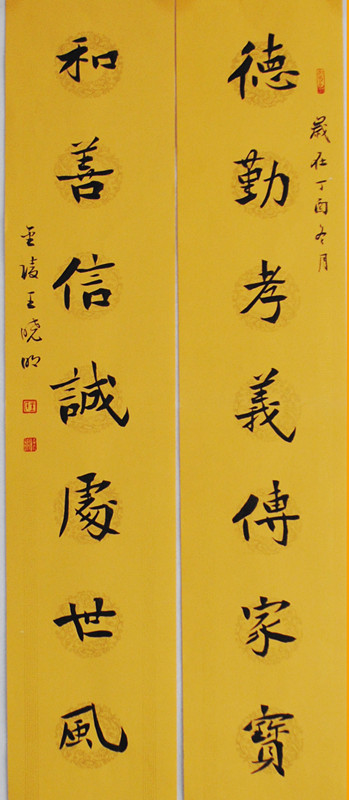 歲在丁酉冬月
德勤孝義傳家寶
和善信誠處世風
金陵王晓明